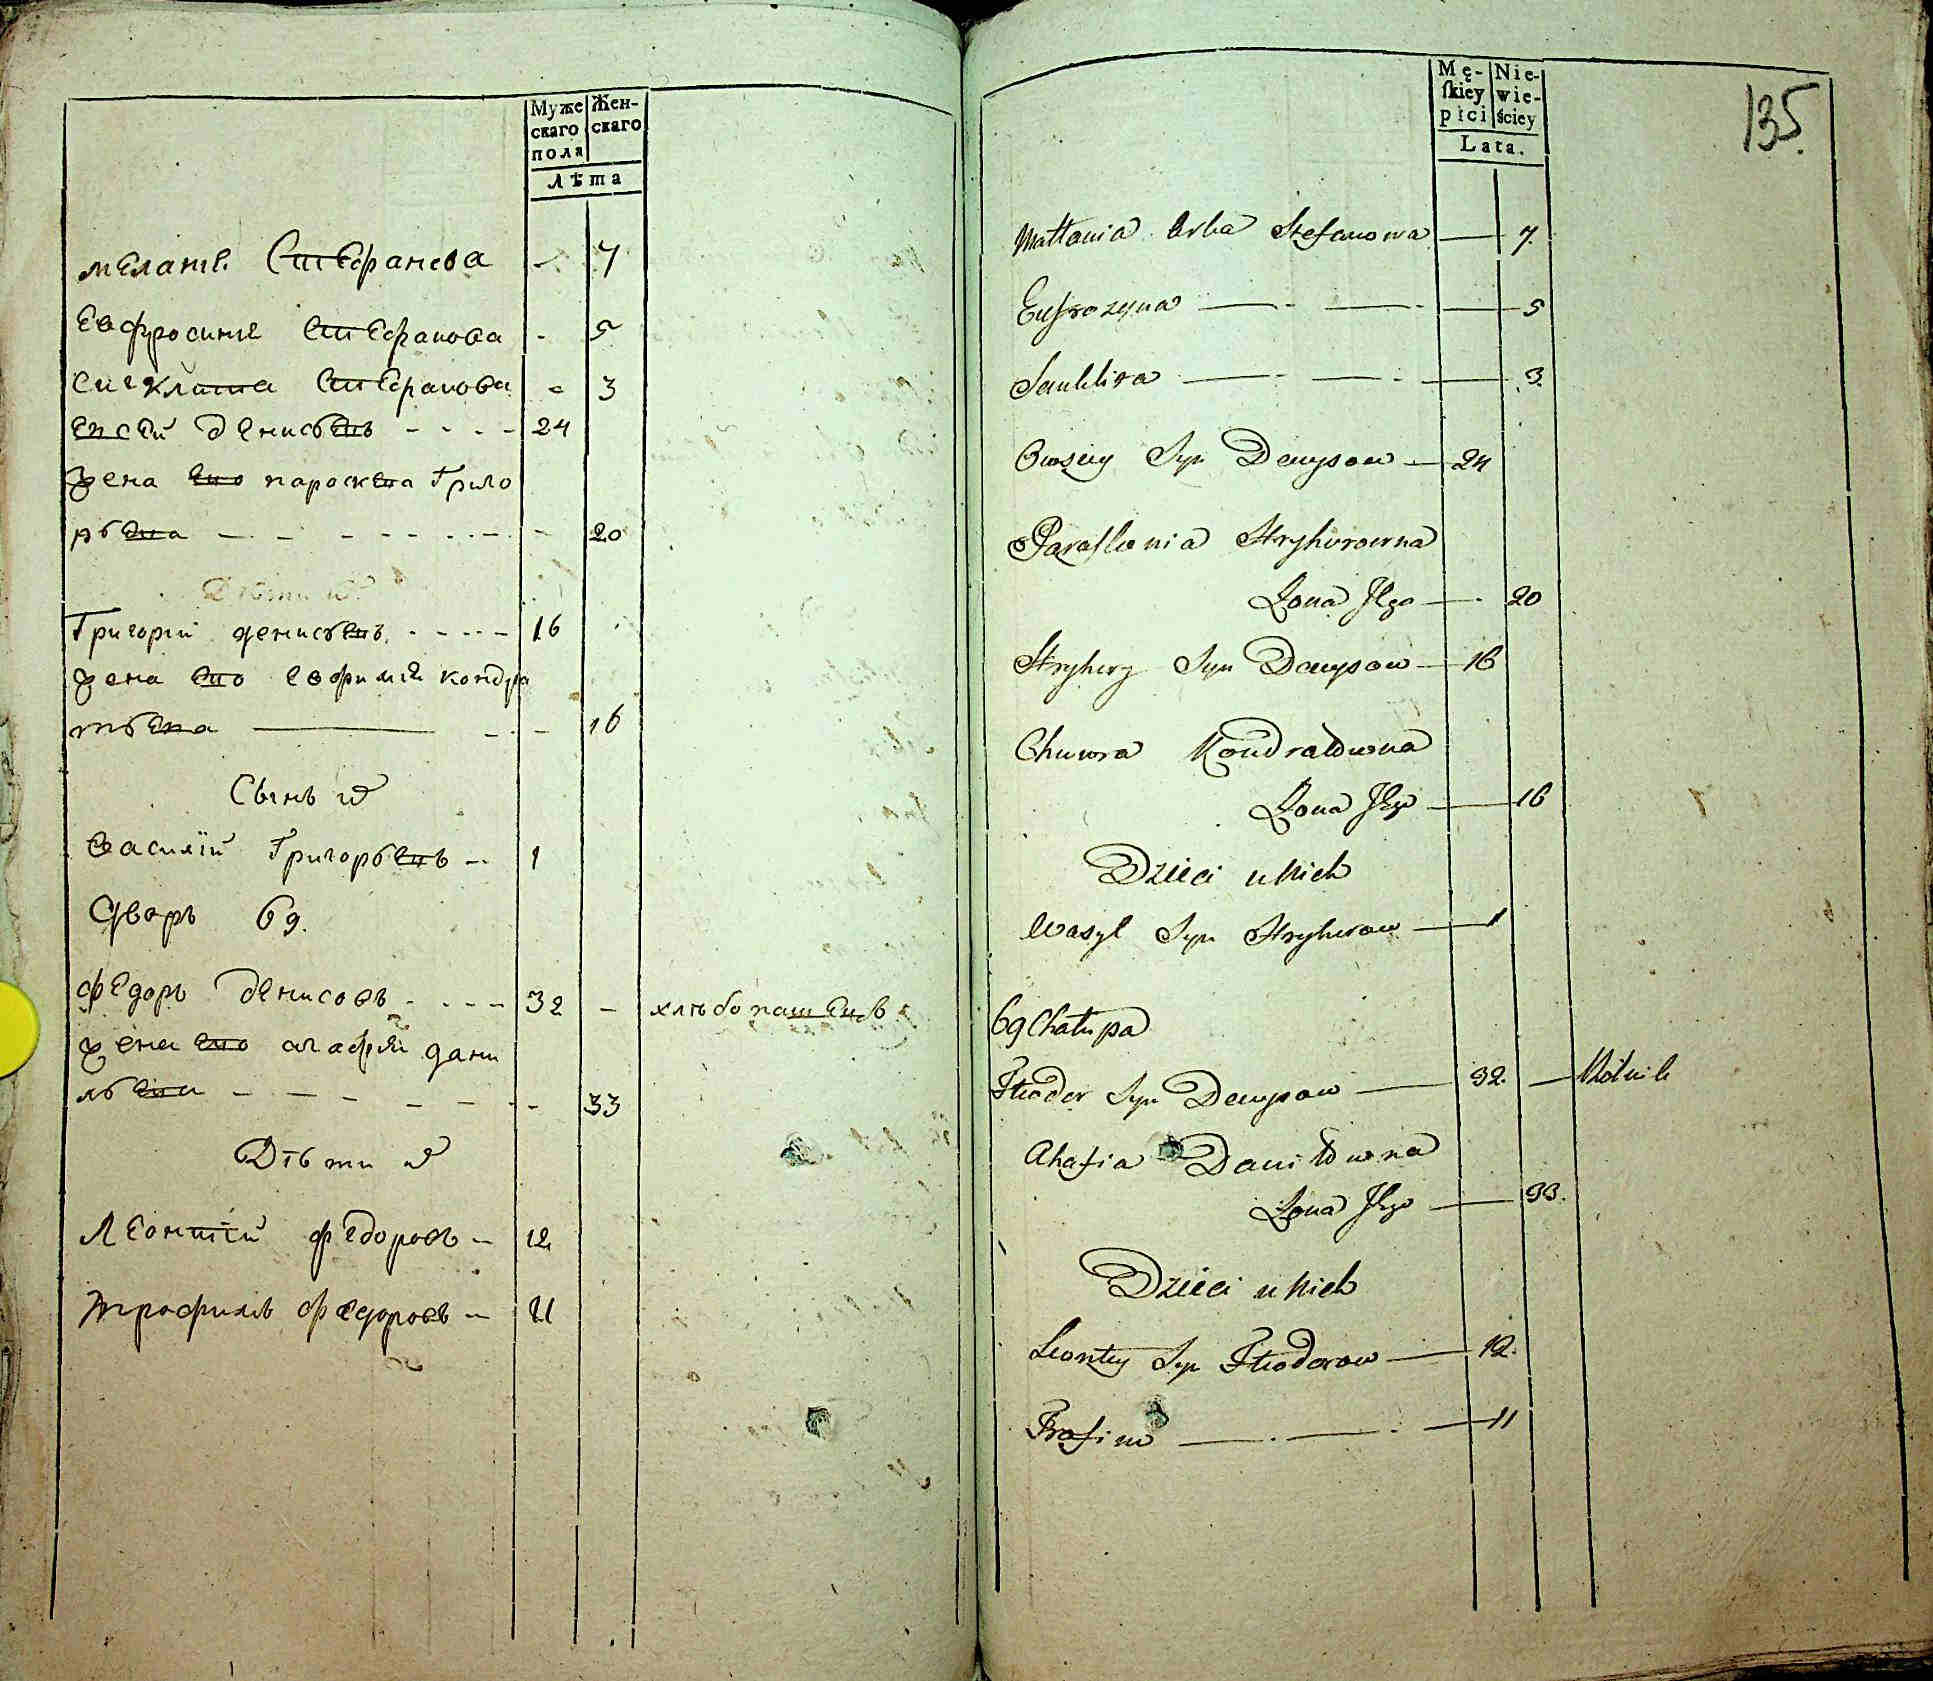 Муже Жен-
скаго скаго
пола
лѣта
меланiя Стефанова - 7
Евфросиния Стефанова - 5
Сигклита Стефанова - 3
Евсей Денисьевъ - - - - 24
жена ево параскева Григо
рьева - - - - - - - 20
Дѣти их
Григорiй денисьевъ - - - - 16
жена ево евфимия кондра
тьева - - 16
Сынъ их
Василiй Григорьевъ - 1
Дворъ 69.
Федоръ Денисовъ - - - - 32 - хлѣбопашецъ
жена ево агафия дани
льева - - - - - - 33
Дѣти их
Леонтiй Федоровъ - 12
Трофимъ Федоровъ - 11
135.
Mę- Nie-
ſkiey wie-
płci ściey
Lata.
Mallania Stefanowa — 7
Eufrozyna — - — - — 5
— - — - — 3.
Owsiey Syn Denysow — 24
Paraskewia Hryhorowna
Żona Jego — - 20
Hryhory Syn Denysow — 16
Chiwra Kondratowna
Żona Jego — 16
Dzieci u Nich
Wasyl Syn Hryhorow — 1
69 Chałupa
Fteodor Syn Denysow — 32. — Rolnik
Ahafia Daniłowna
Żona Jego — 33.
Dzieci u Nich
Leonty Syn Fteodorow — 12.
Trofim — . — . — 11